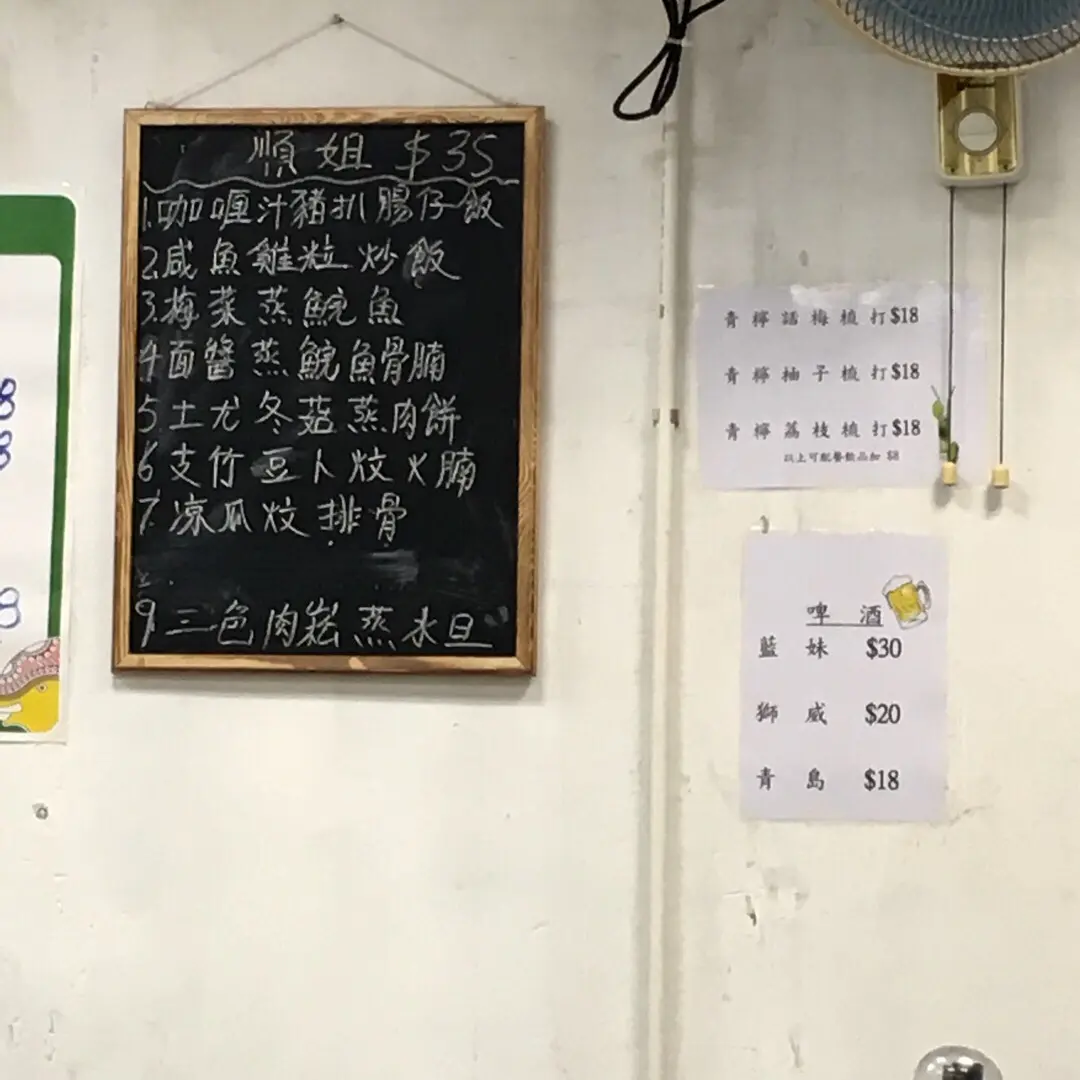 順姐 $35
1.咖喱汁豬扒腸仔飯
2.咸魚雞粒炒飯
3.梅菜蒸鯇魚
4面醬蒸鯇魚骨腩
5土尤冬菇蒸肉餅
6支竹豆卜炆火腩
7.凉瓜炆排骨
9三色肉崧蒸水旦
青檸話梅梳打$18
青檸柚子梳打$18
青檸荔枝梳打$18
以上可配餐飲品加 $8
啤酒
藍妹 $30
獅威 $20
青島 $18